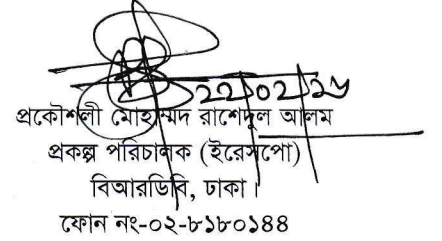 প্রকৌশলী মোহাম্মদ রাশেদুল আলম
প্রকল্প পরিচালক (ইরেসপো)
বিআরডিবি, ঢাকা।
ফোন নং-০২-৮১৮০১৪৪